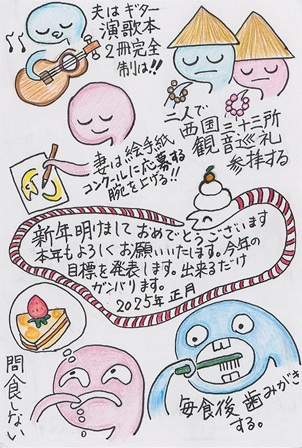 夫はギター
演歌本
2冊完全
制は!!
二人で
西国三十三所
観音巡礼
参拝する
妻は絵手紙
コンクールに応募する
腕を上げる!!
新年明けまして おめでとうございます
本年もよろしくお願いいたします。今年の
目標を発表します。出来るだけ
ガンバります。
2025年 正月
間食しない
毎食後 歯みがき
する。